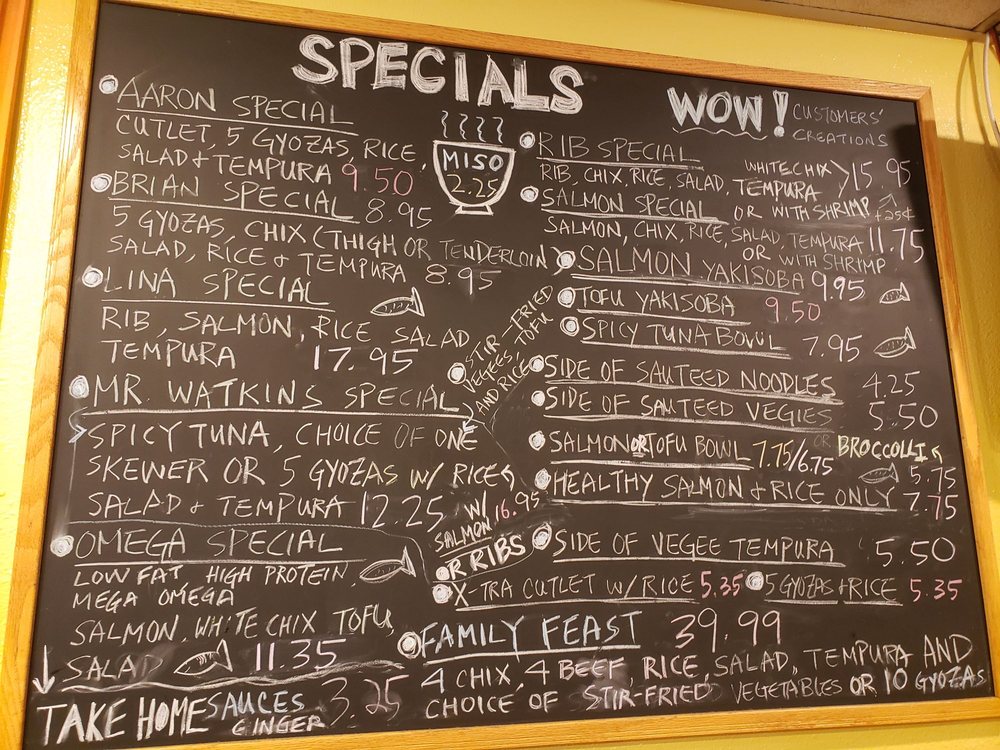 SPECIALS
WOW! CUSTOMERS'
CREATIONS
MISO
2.25
AARON SPECIAL
CUTLET, 5 GYOZAS, RICE,
SALAD + TEMPURA 9.50
BRIAN SPECIAL 8.95
5 GYOZAS, CHIX (THIGH OR TENDERLOIN)
SALAD, RICE + TEMPURA 8.95
LINA SPECIAL
RIB, SALMON, RICE SALAD
TEMPURA 17.95
MR. WATKINS SPECIAL
SPICY TUNA, CHOICE OF ONE
SKEWER OR 5 GYOZAS W/ RICE
SALAD + TEMPURA 12.25
W/ SALMON 16.95
OR RIBS
OMEGA SPECIAL
LOW FAT, HIGH PROTEIN
MEGA OMEGA
SALMON, WHITE CHIX TOFU,
SALAD 11.35
TAKE HOME SAUCES 3.25
GINGER
RIB SPECIAL
RIB, CHIX, RICE, SALAD, TEMPURA WHITE CHIX 15.95
OR WITH SHRIMP +25¢
SALMON SPECIAL
SALMON, CHIX, RICE, SALAD, TEMPURA 11.75
OR WITH SHRIMP
SALMON YAKISOBA 9.95
TOFU YAKISOBA 9.50
SPICY TUNA BOWL 7.95
STIR-FRIED
VEGEES, TOFU
AND RICE
SIDE OF SAUTEED NOODLES 4.25
SIDE OF SAUTEED VEGIES 5.50
OR BROCCOLLI 5.75
SALMON OR TOFU BOWL 7.75/6.75
HEALTHY SALMON + RICE ONLY 7.75
SIDE OF VEGEE TEMPURA 5.50
X-TRA CUTLET W/RICE 5.35
5 GYOZAS + RICE 5.35
FAMILY FEAST 39.99
4 CHIX, 4 BEEF, RICE, SALAD, TEMPURA AND
CHOICE OF STIR-FRIED VEGETABLES OR 10 GYOZAS